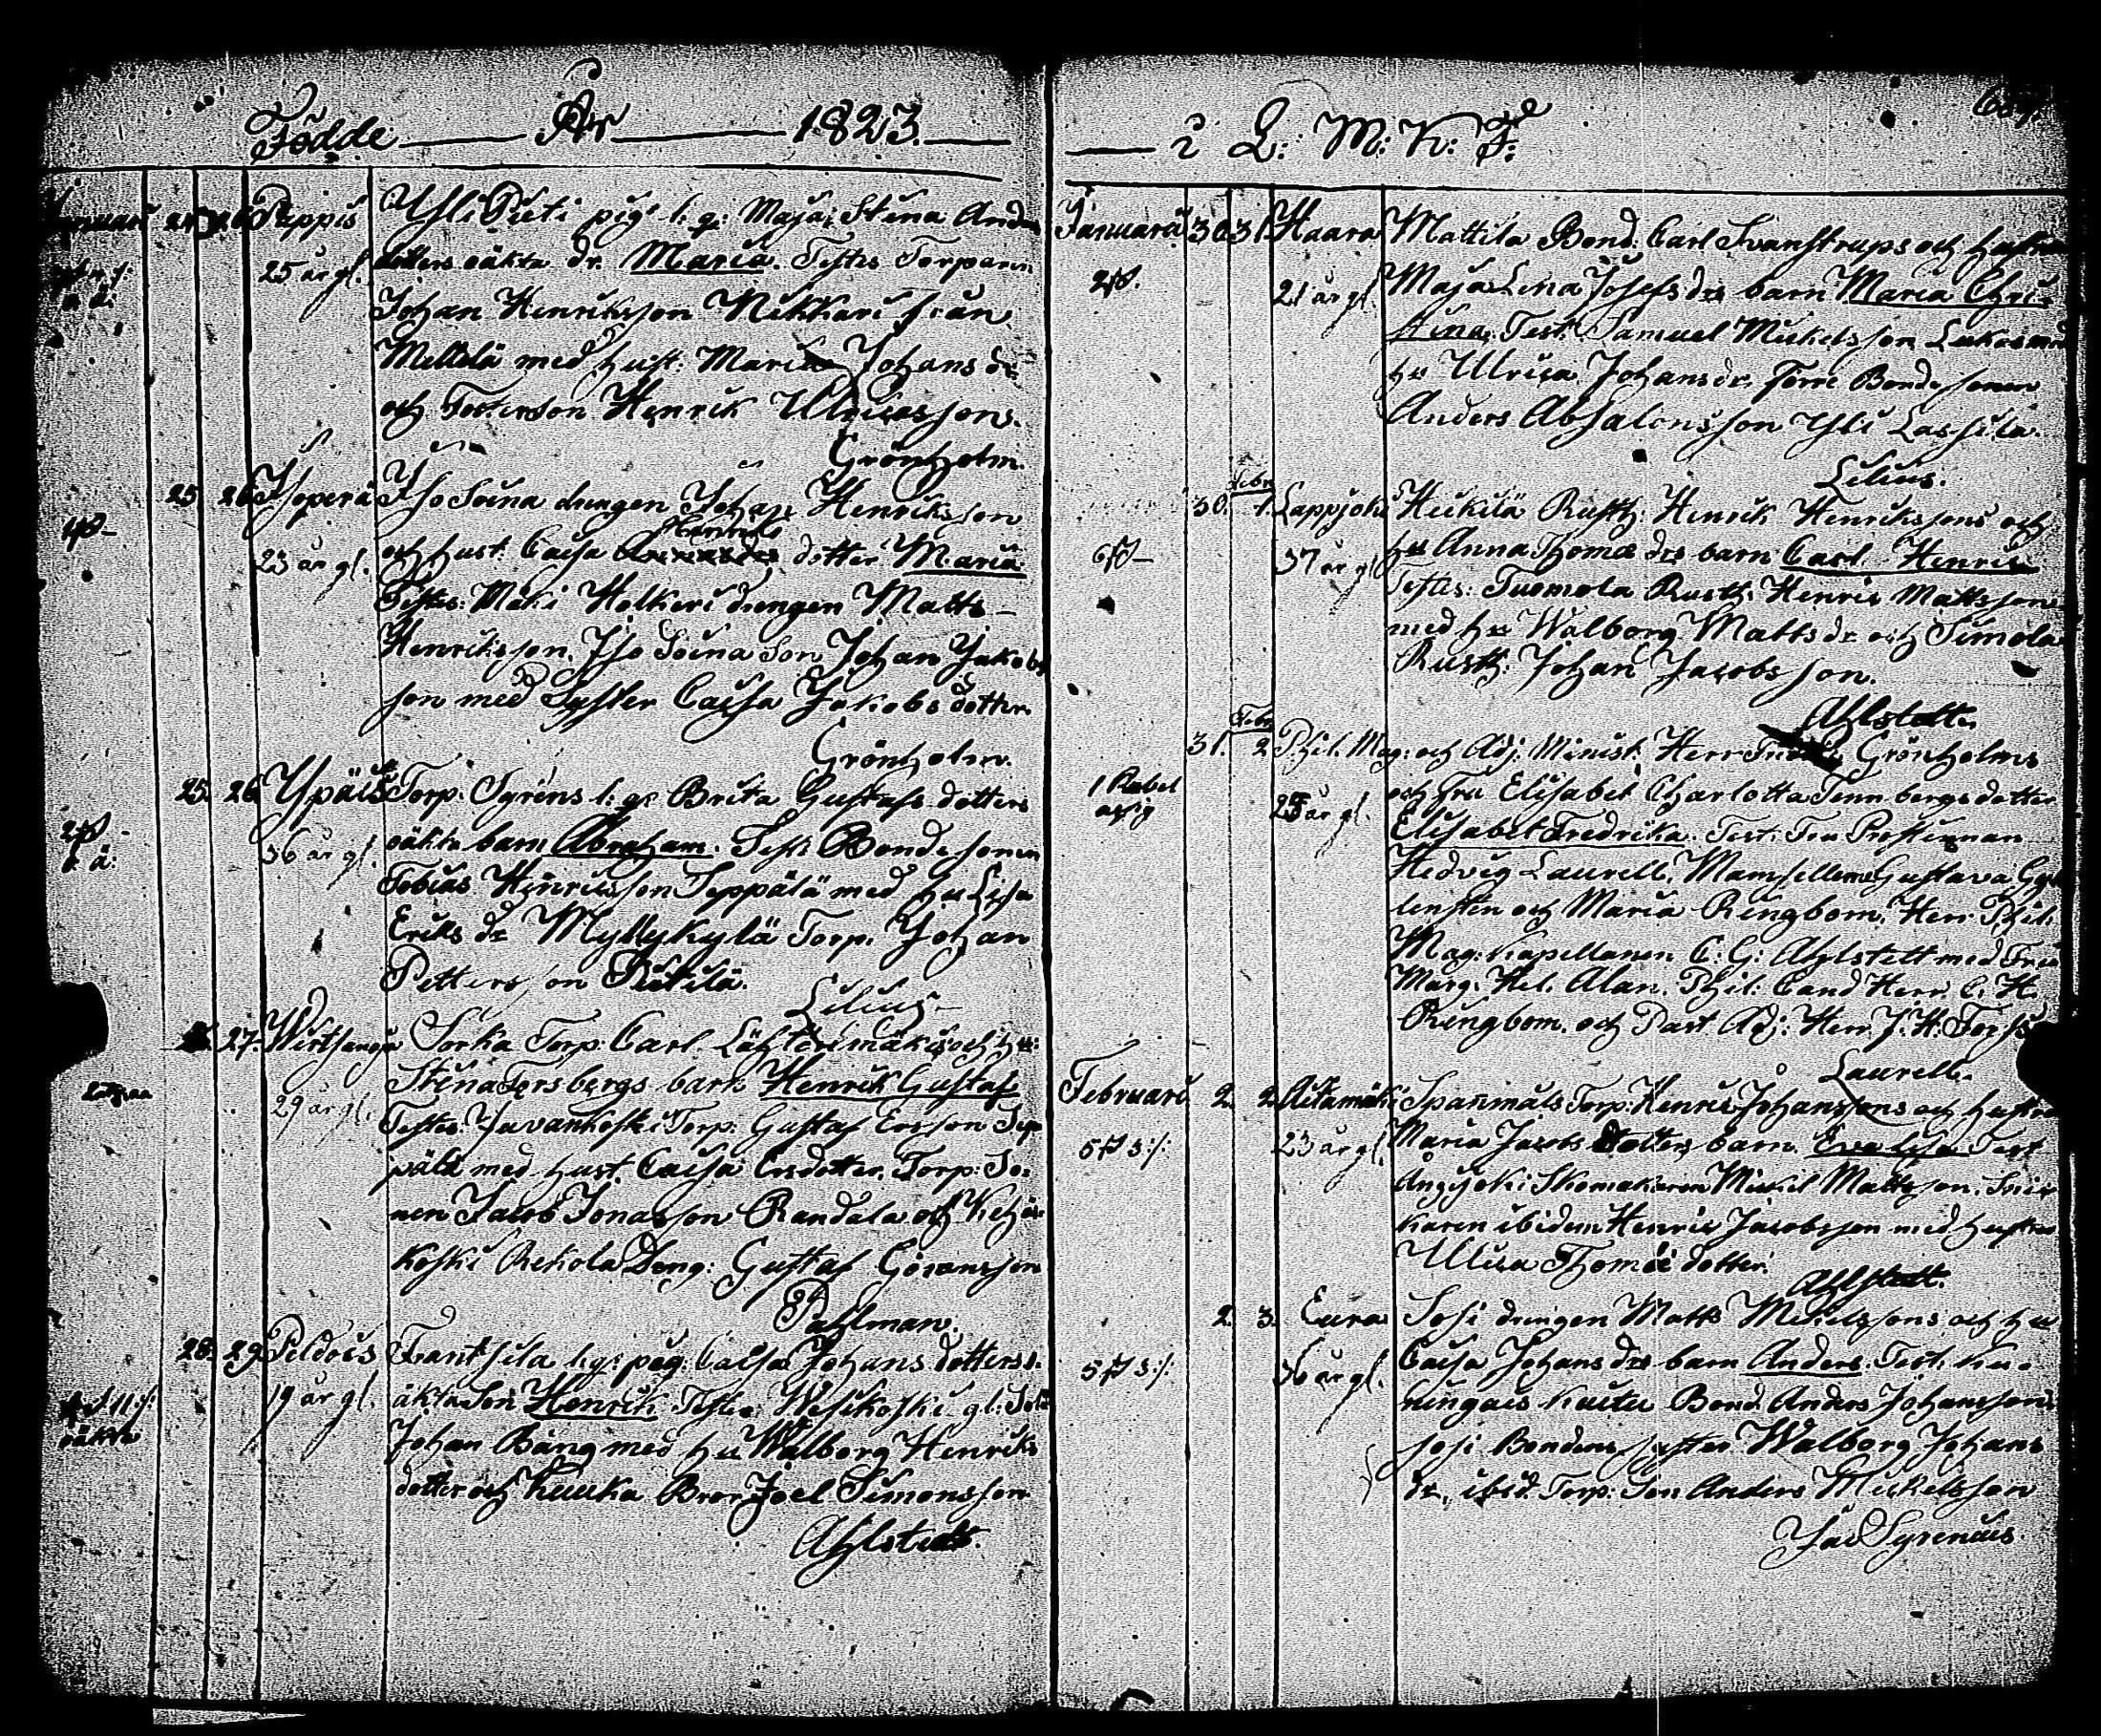 Födde År 1823.
Pappis Yli Pieti pig. l: q: Maja Stina Anders
25 år gl. dotters oäkta dr. Maria. Testes Torparen
Johan Henriksson Nikkari från
med Hust: Maria Johans dr
och Fosterson Henrik Ulricasson.
Grönholm.
25. 26. Isoperä Iso Soina drengen Johan Henriksson
23 år gl. och hust. Caisa Henriks dotter Maria.
Testes: Mäki Holkeri drengen Matts
Henriksson, Iso Soina Son Johan Jakobs
son med Syster Caisa Jakobs dotter.
Grönholm.
25. 26. Ypäis Torp: Syrens l: q: Brita Gustafs dotters
o ä: 36 år gl. oäkta barn Abraham. Test. Bondesonen
Tobias Henricsson Seppälä med Hu Lisa
Eriks dr Myllykylä Torp. Johan
Pettersson Pietilä.
Lilius
27. Wirtsanoja Sorka Torp: Carl Lähtenmäkis och Hu:
29 år gl. Stina Forsbergs barn Henrik Gustaf
Testes: Javankoski Torp: Gustaf Ersson Sep
pälä med hust. Caisa Ersdotter. Torp: So:
nen Jacob Jonasson Randala och Kehä
koski Rekola Dreng: Gustaf Göransson
Pahlman.
28. 29. Peldois Frantsila l: q: pig: Caisa Johans dotters
19 år gl. äkta Son Henrik. Testes: Wesikoski gl: Sold
oäkta
Johan Bång med Hu Walborg Henriks
dotter och Kuuka Bror Joel Simonsson
Ahlstedt.
i L: M: K: F:
Januarii 30 31 Haara Mattila Bond: Carl Svanströms och hustru
21 år gl. Maja Lena Josefs drs barn Maria Chri
stina. Test: Samuel Mickelsson
Hu Ulrica Johansdr. Förre Bondesonen
Anders Absalonsson Yli Lassila.
Lilius.
30. Febr 1. Lappijoki Heikilä Rusth: Henrik Henrikssons och
6 37 år gl. Hu Anna Thomæ drs barn Carl Henric
Testes: Tuomola Rusth: Henric Mattsson
med Hu Walborg Matts dr och Simola
Rusth: Johan Jacobsson.
Ahlstedt.
31. Febr 2. Phil. Mag: och Adj: Minist. Herr Grönholms
1 Rubel 25 år gl. och Fru Elisabet Charlotta Tennbergs dotter
Elisabet Fredrika. Test: Fru Prostinnan
Hedvig Laurell, Mamsellerne Gustava Gyl
lensten och Maria Ringbom. Herr Phil:
Mag: Kapellanen C: G: Ahlstedt med Fru
Marg. Hel. Alan. Phil: Cand Herr C. H.
Ringbom. och Past Adj: Herr J: H: Forss
Laurell.
Februarii 2. 2. Aitamäki Spannmåls Torp: Henric Johanssons och hustru
23 år gl. Maria Jacobs dotters barn. Eva Lisa Test
Skomakaren Mickel Mattsson. Snic
karen ibidem Henric Jacobsson med hustru
Ulica Thomæ dotter.
Ahlstedt.
2. 3. Eura Sosi drengen Matts Mickelssons och Hu
36 år gl. Caisa Johans drs barn Anders. Test: Ku
ningais Kustu Bond. Anders Johansson.
Sosi Bondens syster Walborg Johans
dr, ibid. Torp: Son Anders Mickelsson
Jac Syrenius.